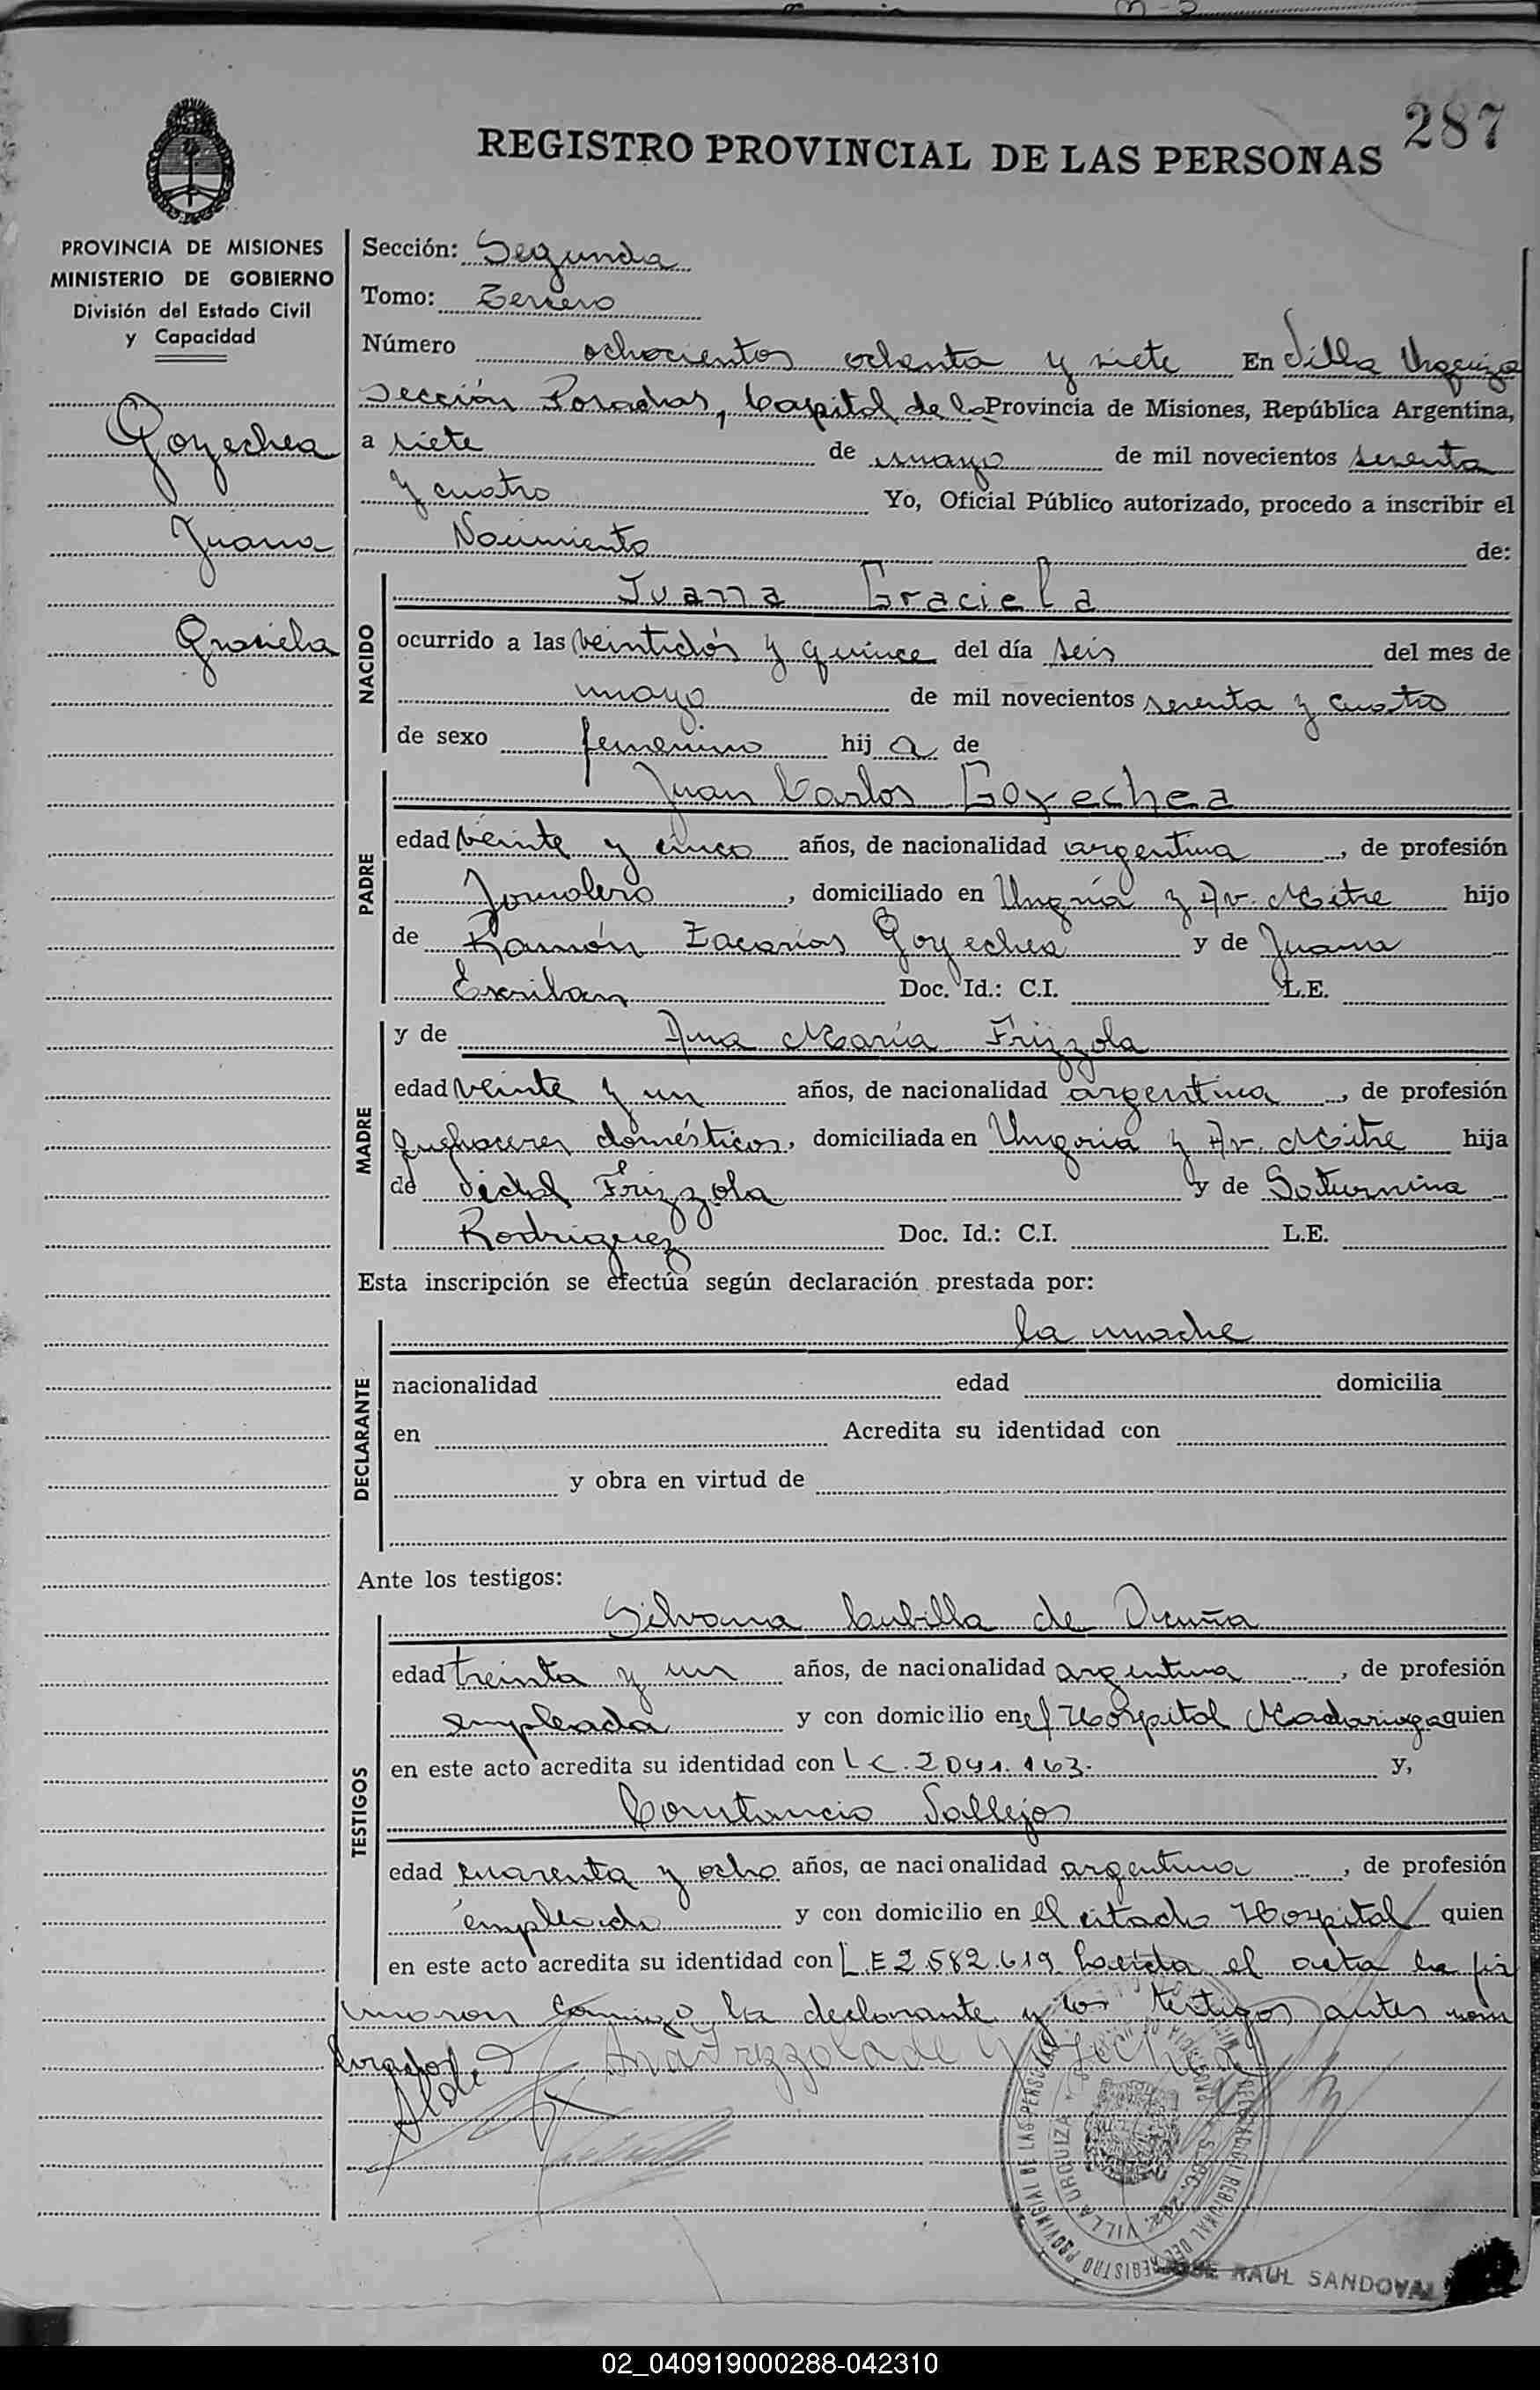 287
REGISTRO PROVINCIAL DE LAS PERSONAS
PROVINCIA DE MISIONES
MINISTERIO DE GOBIERNO
División del Estado Civil
y Capacidad
Goyechea
Juana
Graciela
Sección: Segunda
Tomo: Tercero
Número ochocientos ochenta y siete En Villa Urquiza
Sección Posadas, Capital de la Provincia de Misiones, República Argentina,
a siete de mayo de mil novecientos setenta
y cuatro Yo, Oficial Público autorizado, procedo a inscribir el
Nacimiento de:
NACIDO
Juana Graciela
ocurrido a las veintidós y quince del día seis del mes de
mayo de mil novecientos setenta y cuatro
de sexo femenino hij a de
PADRE
Juan Carlos Goyechea
edad veinte y cinco años, de nacionalidad argentina, de profesión
Jornalero, domiciliado en Ungría y Av. Mitre hijo
de Ramón Zacarías Goyechea y de Juana
Escriban Doc. Id.: C.I. L.E.
MADRE
y de Ana María Frizzola
edad veinte y un años, de nacionalidad argentina, de profesión
quehaceres domésticos, domiciliada en Ungria y Av. Mitre hija
de Vidal Frizzola y de Saturnina
Rodriguez Doc. Id.: C.I. L.E.
Esta inscripción se efectúa según declaración prestada por:
DECLARANTE
la madre
nacionalidad edad domicilia
en Acredita su identidad con
y obra en virtud de
Ante los testigos:
TESTIGOS
Silvana Cubilla de Acuña
edad treinta y un años, de nacionalidad argentina, de profesión
empleada y con domicilio en el Hospital Madariaga quien
en este acto acredita su identidad con L C. 2041.163. y,
Constancio Vallejos
edad cuarenta y ocho años, de nacionalidad argentina, de profesión
empleado y con domicilio en el citado Hospital quien
en este acto acredita su identidad con L.E 2.582.619 Leída el acta la fir
maron conmigo la declarante y los testigos antes nom
brados
Ana Frizzola de Goyechea
REGISTRO PROVINCIAL DE LAS PERSONAS
VILLA URQUIZA
JOSE RAUL SANDOVAL
02_040919000288-042310